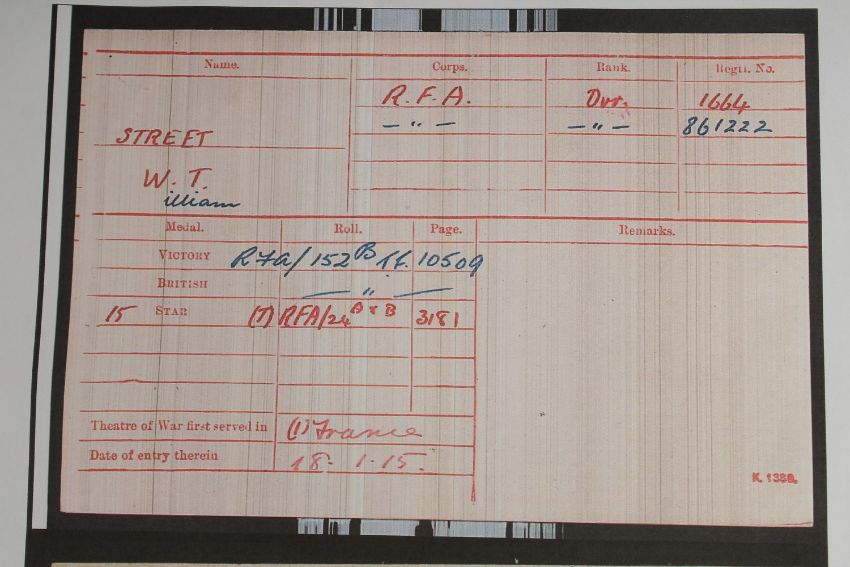 Name. Corps. Rank. Regtl. No.
R.F.A. Dvr. 1664
— " — — " — 861222
STREET
W. T.
illiam
Medal. Roll. Page. Remarks.
VICTORY RFA/152 B TF. 10509
BRITISH — " —
15 STAR (T) RFA/24 A & B 3181
Theatre of War first served in (1) France
Date of entry therein 18. 1. 15.
K. 1380.